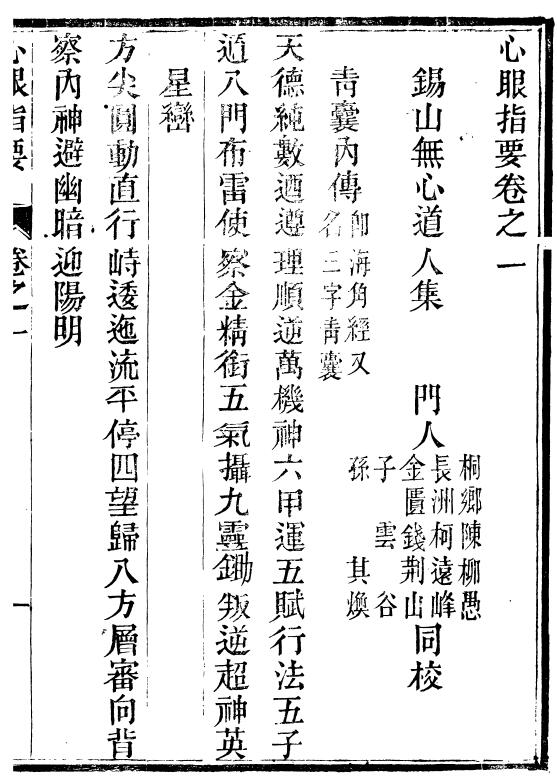 心眼指要卷之一
錫山無心道人集　門人
桐鄉陳柳愚
長洲柯遠峰
金匱錢荆山
子　雲谷
孫　其煥
同校
青囊內傳
卽海角經又
名三字青囊
天德純數迺遵理順逆萬機神六甲運五賦行法五子
遁八門布雷使察金精銜五氣攝九靈鋤叛逆超神英
星巒
方尖圓動直行峙逶迤流平停四望歸八方層審向背
察內神避幽暗迎陽明
心眼指要
卷之一
一